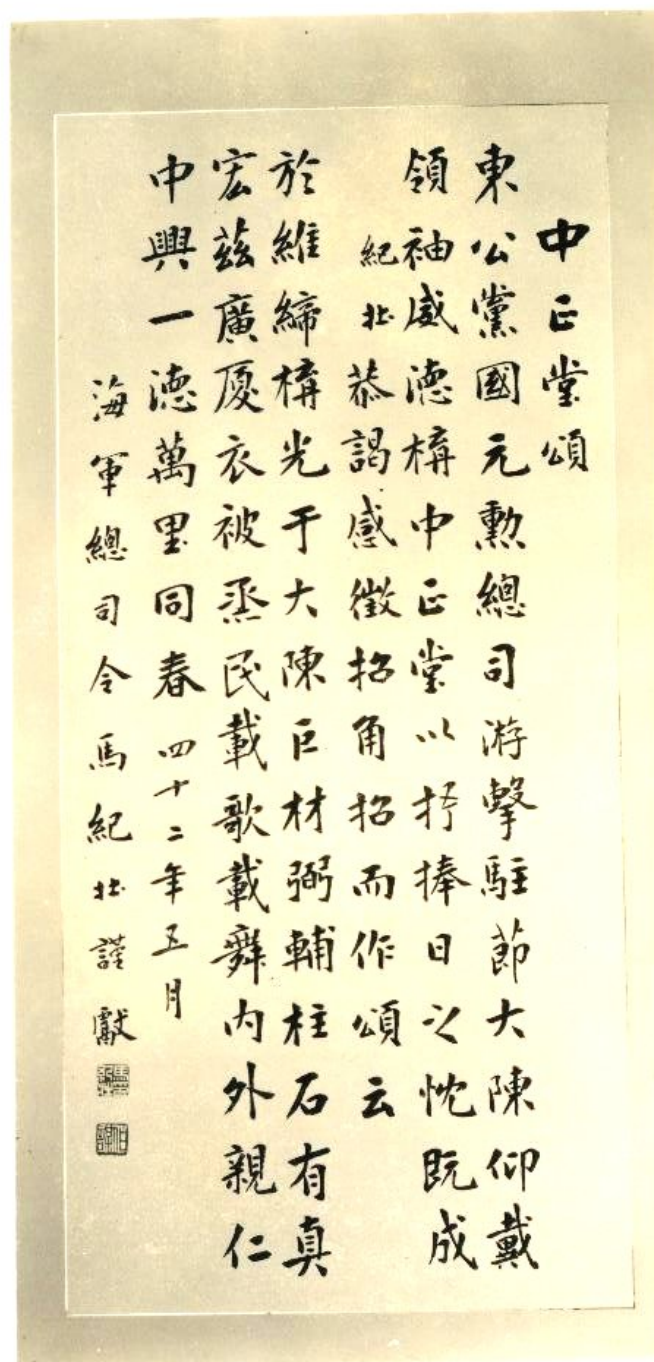 中正堂頌
東公黨國元勳總司游擊駐節大陳仰戴
領袖威德構中正堂以抒捧日之忱既成
紀壯恭謁感徵招角招而作頌云
於維締構光于大陳巨材弼輔柱石有真
宏茲廣廈衣被烝民載歌載舞內外親仁
中興一德萬里同春四十二年五月
海軍總司令馬紀壯謹獻